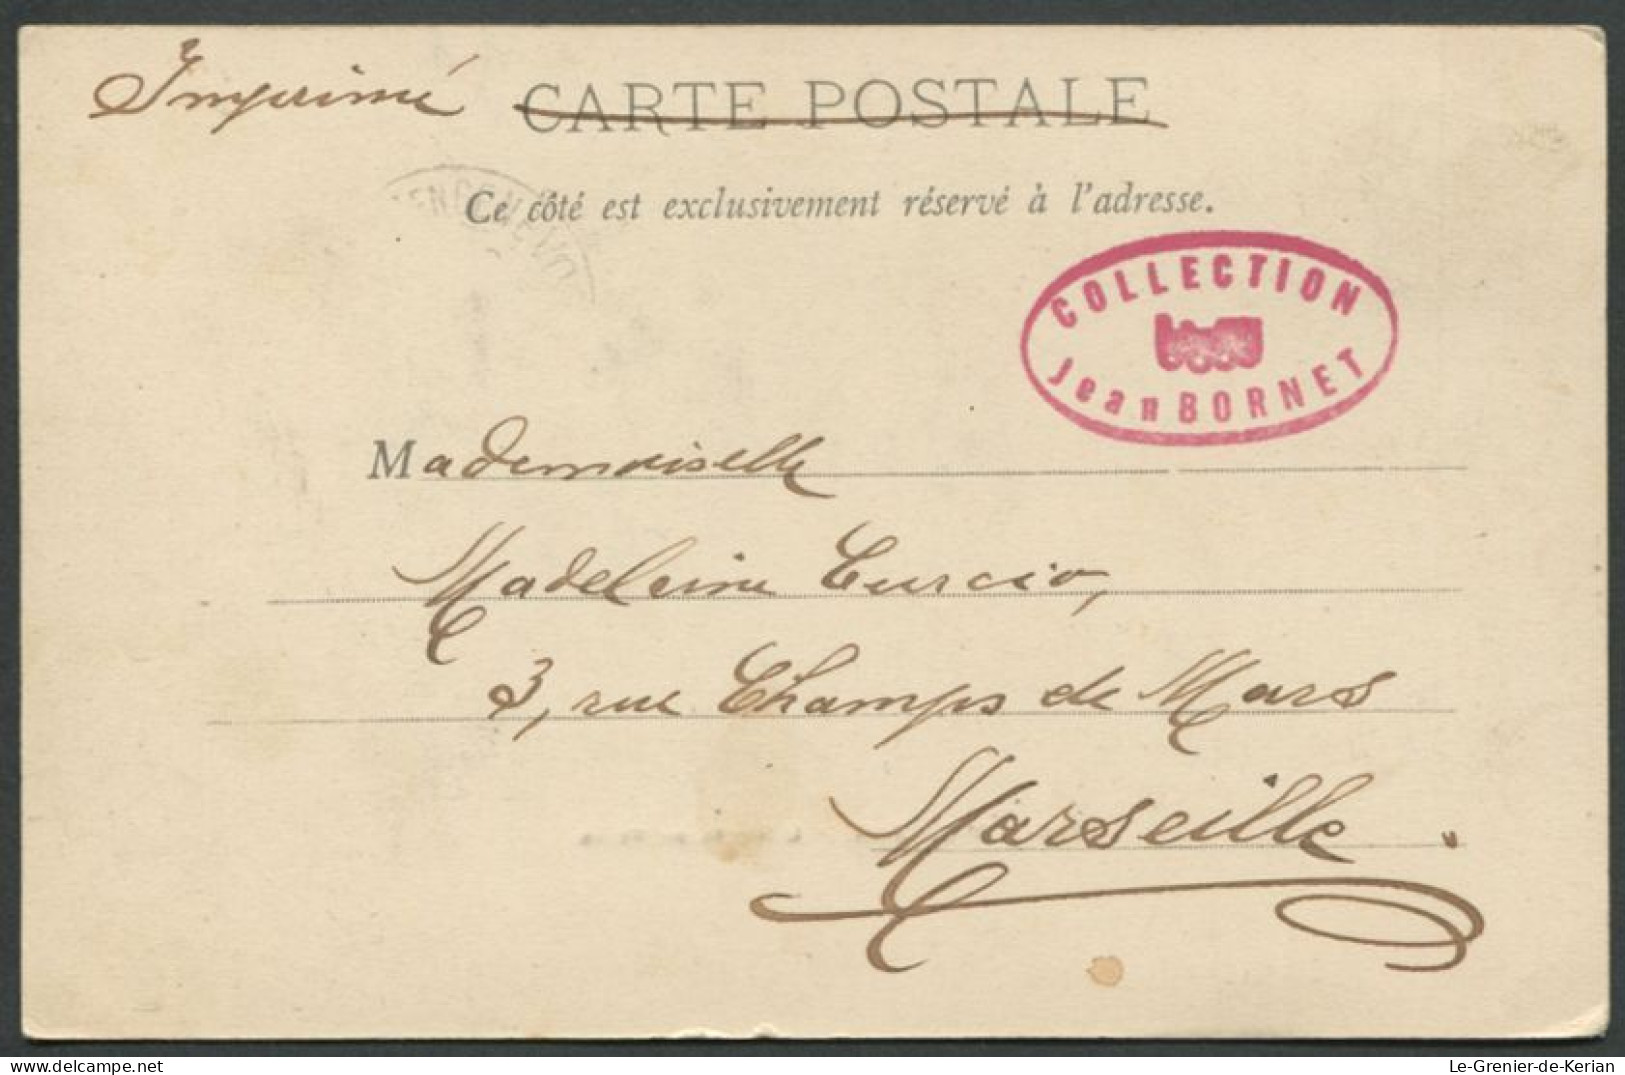 Imprimé
CARTE POSTALE
Ce côté est exclusivement réservé à l'adresse.
COLLECTION
Jean BORNET
Mademoiselle
Madeleine Curcio,
3, rue Champs de Mars
Marseille.
delcampe.net
Le-Grenier-de-Kerian